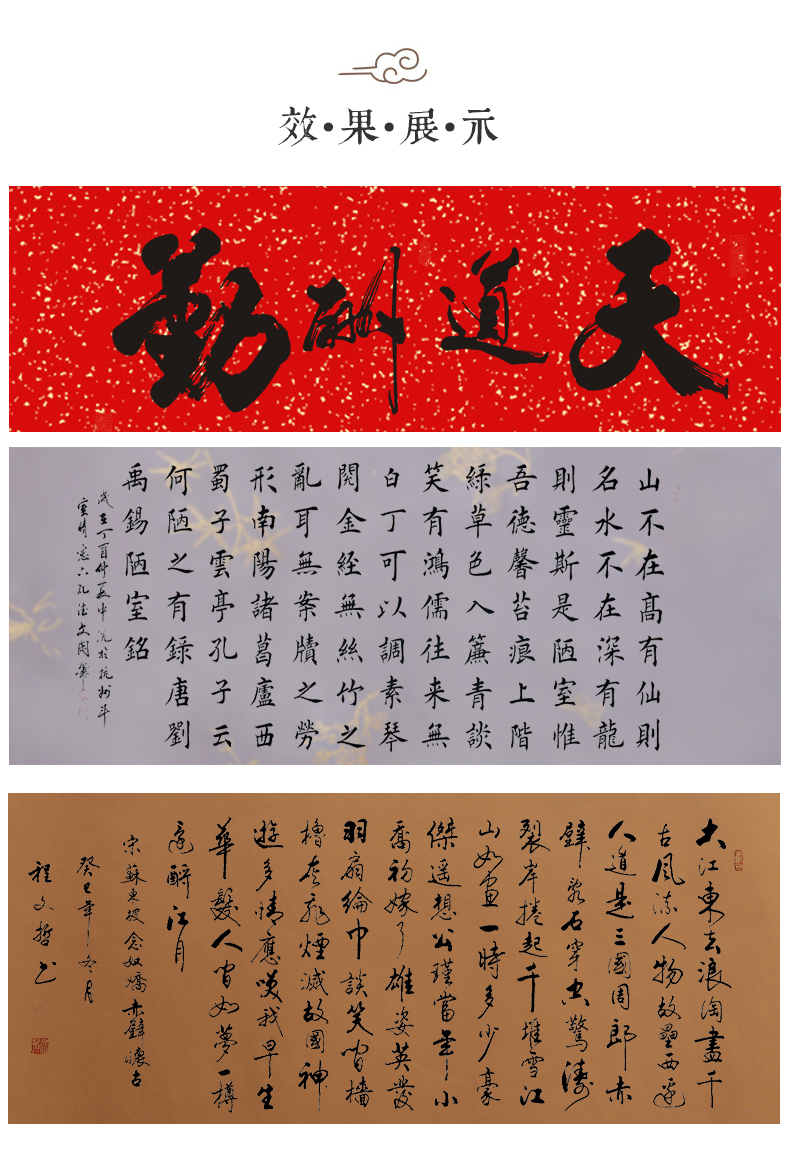 效·果·展·示
天道酬勤
山不在高有仙則
名水不在深有龍
則靈斯是陋室惟
吾德馨苔痕上階
綠草色入簾青談
笑有鴻儒往来無
白丁可以調素琴
閱金經無絲竹之
亂耳無案牘之勞
形南陽諸葛廬西
蜀子雲亭孔子云
何陋之有錄唐劉
禹錫陋室銘
大江東去浪淘盡千
古風流人物故壘西邊
人道是三國周郎赤
壁亂石穿空驚濤
裂岸捲起千堆雪江
山如畫一時多少豪
傑遥想公瑾當年小
喬初嫁了雄姿英發
羽扇綸巾談笑間檣
櫓灰飛煙滅故國神
遊多情應笑我早生
華髮人間如夢一樽
還酹江月
宋蘇東坡念奴嬌赤壁懷古
癸巳年冬月
程文哲书